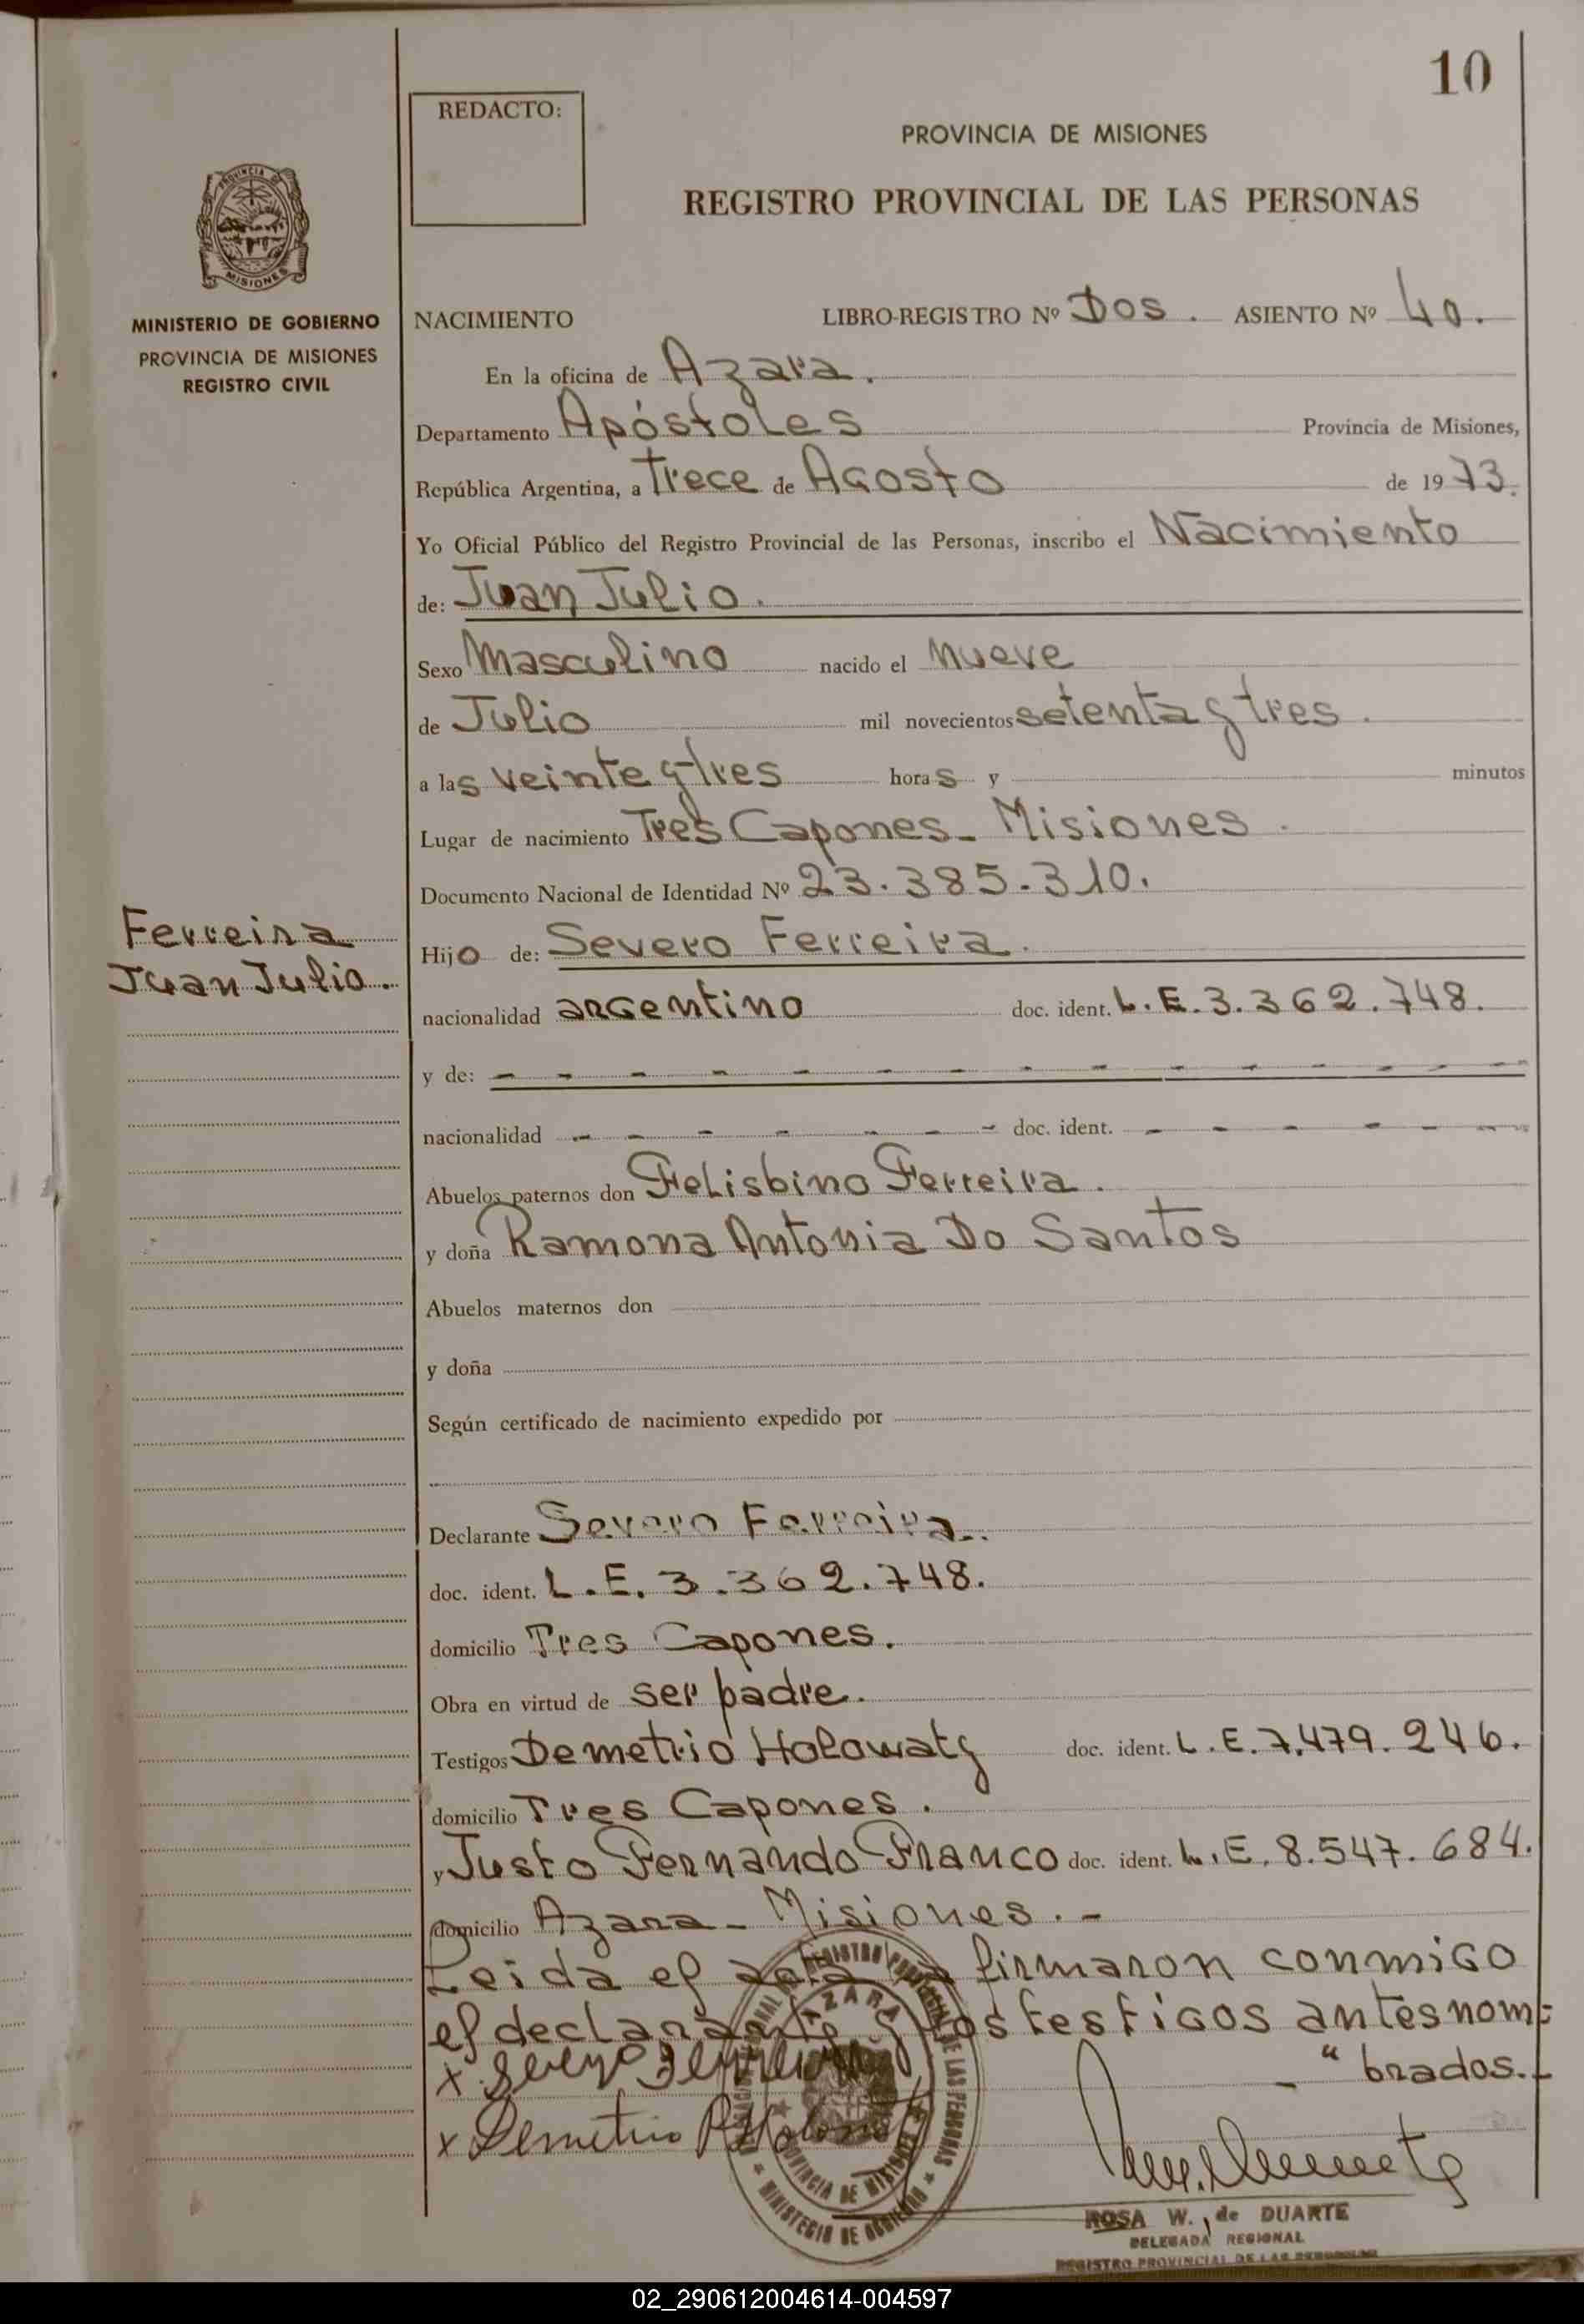 10
REDACTO:
PROVINCIA DE MISIONES
REGISTRO PROVINCIAL DE LAS PERSONAS
PROVINCIA DE
MISIONES
MINISTERIO DE GOBIERNO
PROVINCIA DE MISIONES
REGISTRO CIVIL
NACIMIENTO LIBRO-REGISTRO Nº Dos. ASIENTO Nº 40.
En la oficina de Azara.
Departamento Apóstoles Provincia de Misiones,
República Argentina, a Trece de Agosto de 1973.
Yo Oficial Público del Registro Provincial de las Personas, inscribo el Nacimiento
de: Juan Julio.
Sexo Masculino nacido el nueve
de Julio mil novecientos setenta y tres.
a las veinte y tres horas y minutos
Lugar de nacimiento Tres Capones - Misiones.
Documento Nacional de Identidad Nº 23.385.310.
Ferreira
Juan Julio.
Hijo de: Severo Ferreira.
nacionalidad argentino doc. ident. L.E. 3.362.748.
y de: - - - - - - - - - - - - - -
nacionalidad - - - - - - - doc. ident. - - - - - -
Abuelos paternos don Felisbino Ferreira.
y doña Ramona Antonia Do Santos
Abuelos maternos don
y doña
Según certificado de nacimiento expedido por
Declarante Severo Ferreira.
doc. ident. L.E. 3.362.748.
domicilio Tres Capones.
Obra en virtud de ser padre.
Testigos Demetrio Holowaty doc. ident. L.E. 7.479.246.
domicilio Tres Capones.
y Justo Fernando Franco doc. ident. L.E. 8.547.684.
domicilio Azara - Misiones. -
Leida el acta firmaron conmigo
el declarante y los testigos antes nom=
" brados.-
x Severo Ferreira
x Demetrio
REGISTRO PROVINCIAL DE LAS PERSONAS
AZARA
PROVINCIA DE MISIONES
MINISTERIO DE GOBIERNO
ROSA W. de DUARTE
DELEGADA REGIONAL
REGISTRO PROVINCIAL DE LAS PERSONAS
02_290612004614-004597